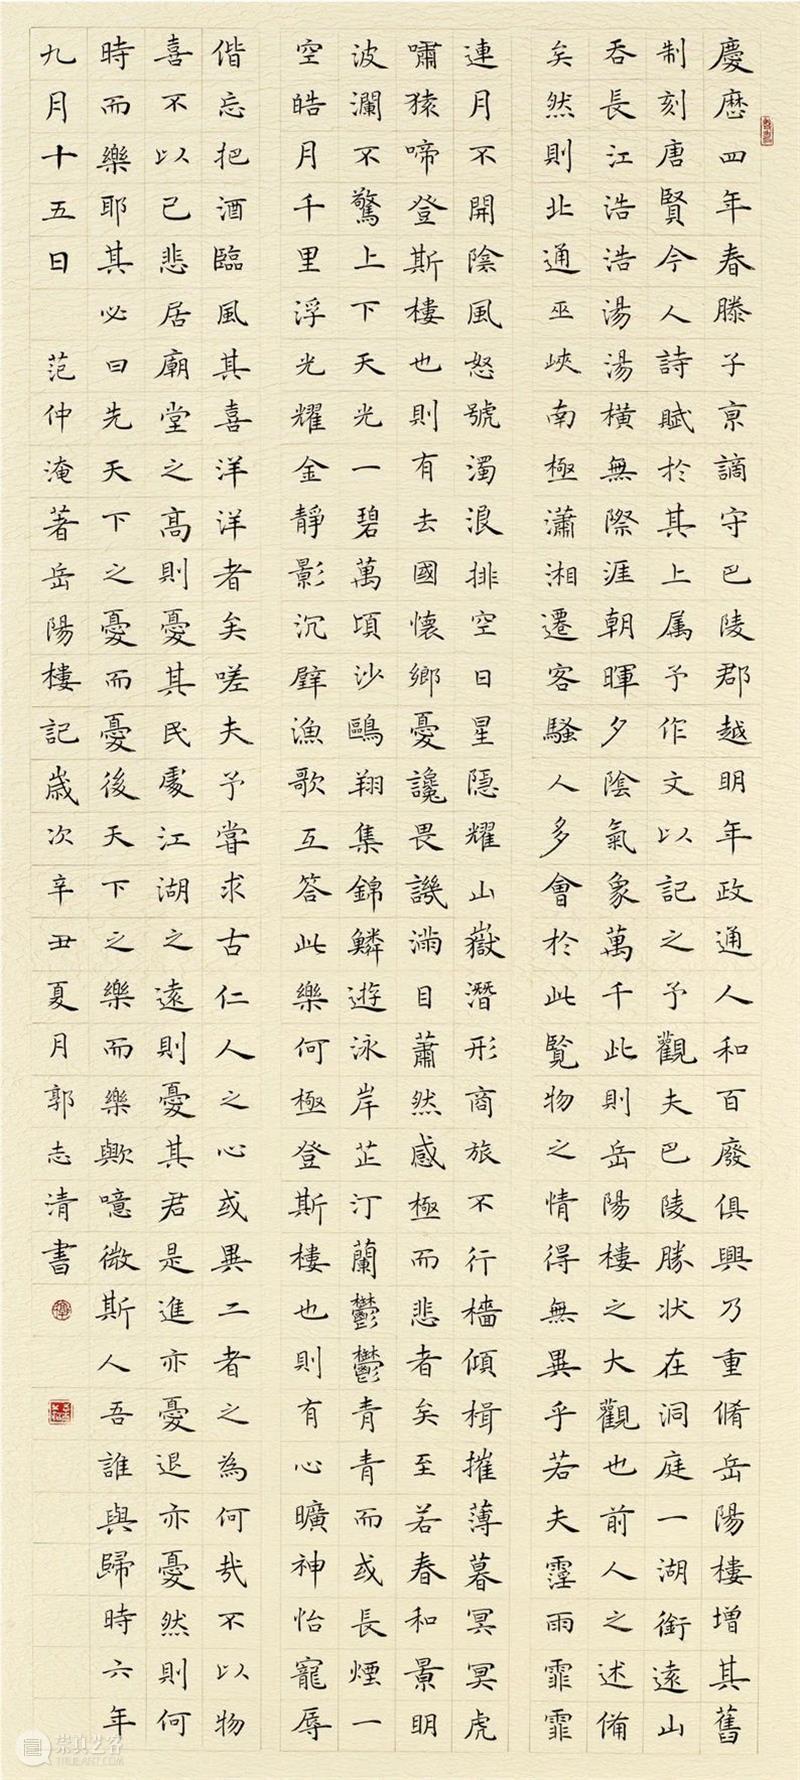 慶歷四年春滕子京謫守巴陵郡越明年政通人和百廢俱興乃重脩岳陽樓增其舊
制刻唐賢今人詩賦於其上属予作文以記之予觀夫巴陵勝狀在洞庭一湖銜遠山
吞長江浩浩湯湯橫無際涯朝暉夕陰氣象萬千此則岳陽樓之大觀也前人之述備
矣然則北通巫峽南極瀟湘遷客騷人多會於此覽物之情得無異乎若夫霪雨霏霏
連月不開陰風怒號濁浪排空日星隱耀山嶽潛形商旅不行檣傾楫摧薄暮冥冥虎
嘯猿啼登斯樓也則有去國懷鄉憂讒畏譏滿目蕭然感極而悲者矣至若春和景明
波瀾不驚上下天光一碧萬頃沙鷗翔集錦鱗遊泳岸芷汀蘭鬱鬱青青而或長煙一
空皓月千里浮光耀金靜影沉璧漁歌互答此樂何極登斯樓也則有心曠神怡寵辱
偕忘把酒臨風其喜洋洋者矣嗟夫予嘗求古仁人之心或異二者之為何哉不以物
喜不以己悲居廟堂之高則憂其民處江湖之遠則憂其君是進亦憂退亦憂然則何
時而樂耶其必曰先天下之憂而憂後天下之樂而樂歟噫微斯人吾誰與歸時六年
九月十五日 范仲淹著岳陽樓記歲次辛丑夏月郭志清書
崇真艺客